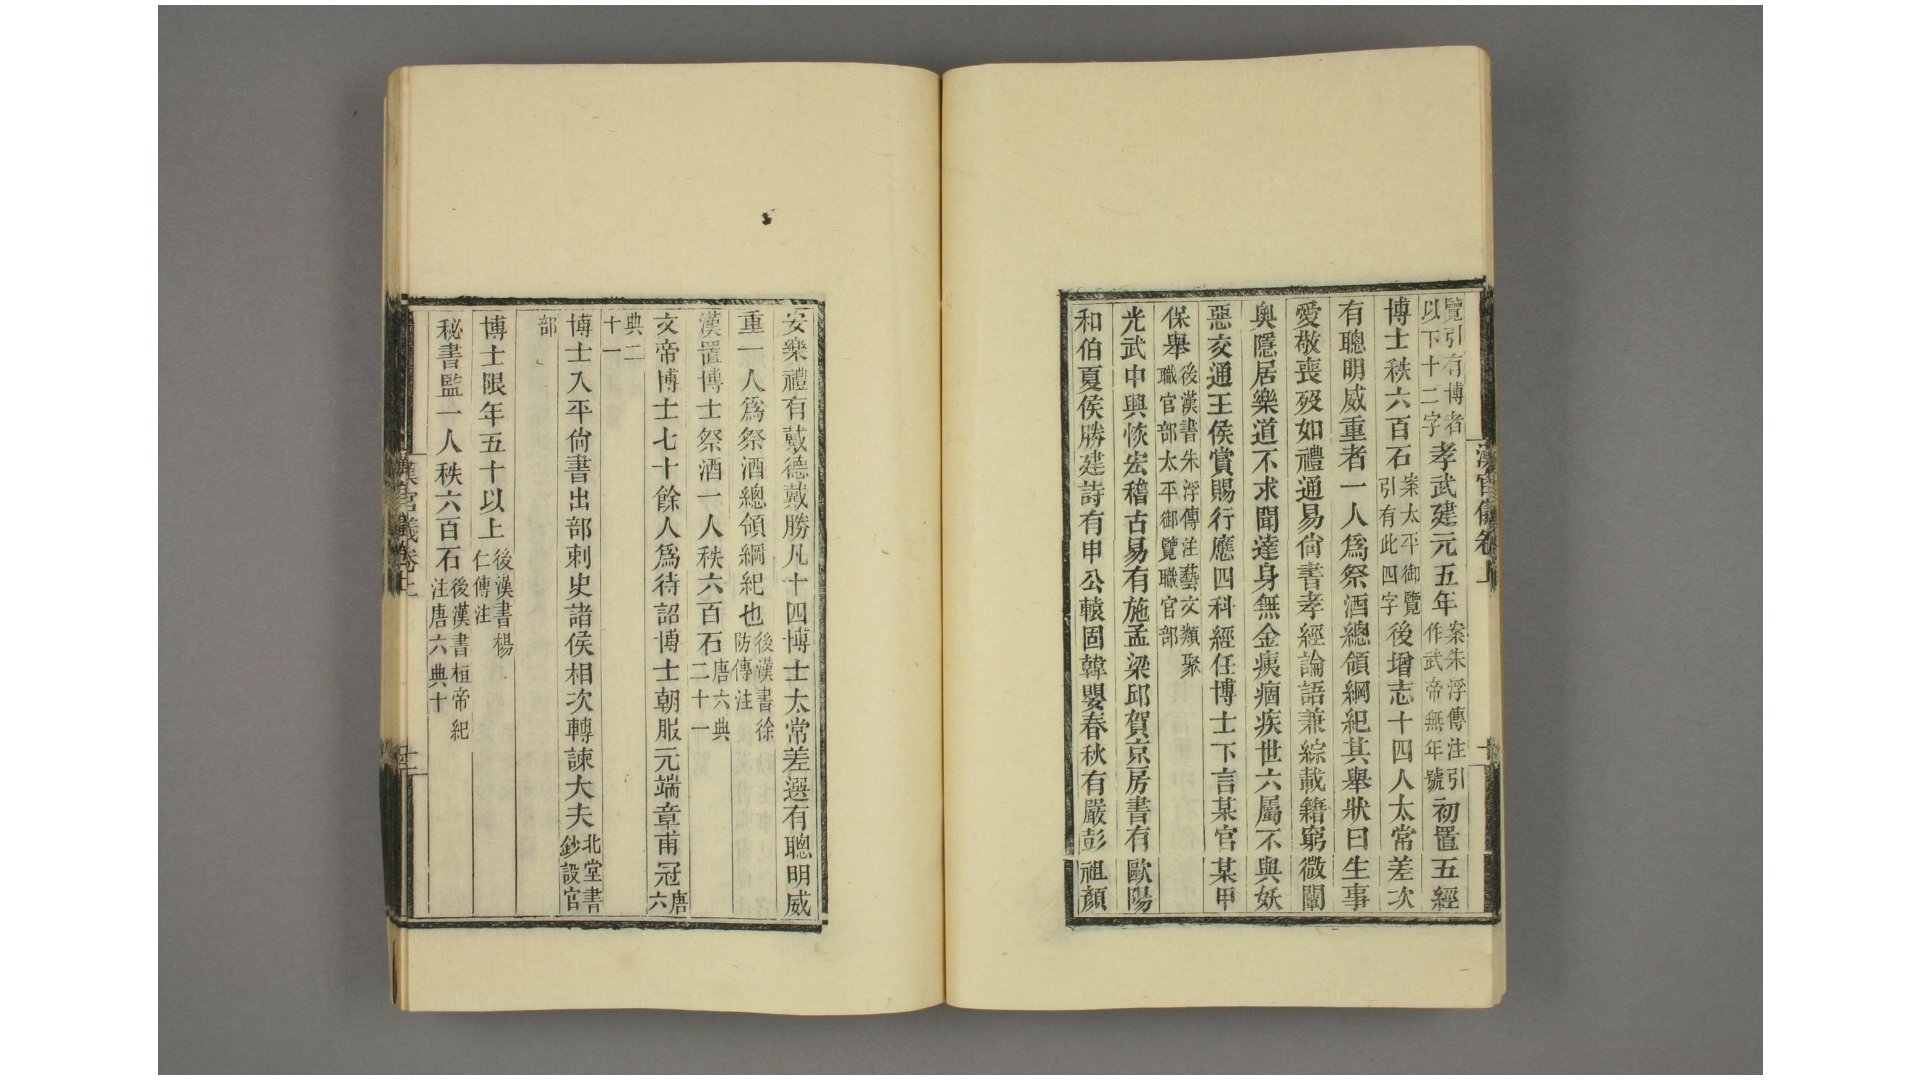 漢官儀卷上
覽引有博者以下十二字孝武建元五年案朱浮傳注引作武帝無年號初置五經
博士秩六百石案太平御覽引有此四字後增志十四人太常差次
有聰明威重者一人爲祭酒總領綱紀其舉狀曰生事
愛敬喪歿如禮通易尙書孝經論語兼綜載籍窮微闡
奧隱居樂道不求聞達身無金痍痼疾世六屬不與妖
惡交通王侯賞賜行應四科經任博士下言某官某甲
保舉後漢書朱浮傳注藝文類聚職官部太平御覽職官部
光武中興恢宏稽古易有施孟梁邱賀京房書有歐陽
和伯夏侯勝建詩有申公轅固韓嬰春秋有嚴彭祖顏
安樂禮有戴德戴勝凡十四博士太常差選有聰明威
重一人爲祭酒總領綱紀也後漢書徐防傳注
漢置博士祭酒一人秩六百石唐六典二十一
文帝博士七十餘人爲待詔博士朝服元端章甫冠唐六
典二十一
博士入平尙書出部刺史諸侯相次轉諫大夫北堂書鈔設官
部
博士限年五十以上後漢書楊仁傳注
秘書監一人秩六百石後漢書桓帝紀注唐六典十
漢官儀卷上